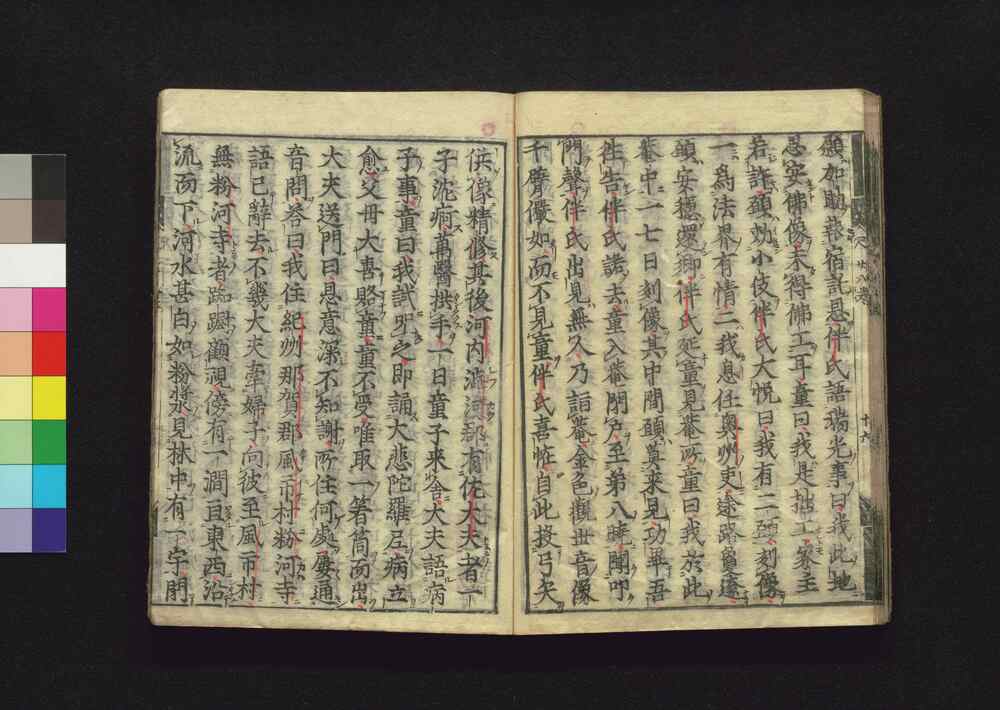 願如助葬宿託恩伴氏語瑞光事曰我此地
思安佛像未得佛工耳童曰我是拙工家主
若許願効小伎伴氏大悦曰我有二盟刻像
一爲法界有情二我息任奥州吏途路夐遼
願安穩還郷伴氏延童見菴所童曰我於此
菴中一七日刻像其中間願莫来見功畢吾
往告伴氏諾去童入菴閉戸至第八暁聞叩
門聲伴氏出見無人乃詣菴金色觀世音像
千臂儼如而不見童伴氏喜怪自此投弓矢
供像精修其後河内渋河郡有佐大夫者一
子沈痾萬醫拱手一日童子来舎大夫語病
子事童曰我試咒之即誦大悲陀羅尼病立
愈父母大喜賂童童不受唯取一箸筒而出
大夫送門曰恩意深不知謝所住何處屢通
音問答曰我住紀州那賀郡風市村粉河寺
語已辭去不幾大夫牽婦子向彼至風市村
無粉河寺者踟蹰顧視傍有一澗且東西沿
流而下河水甚白如粉漿見林中有一宇開
十六